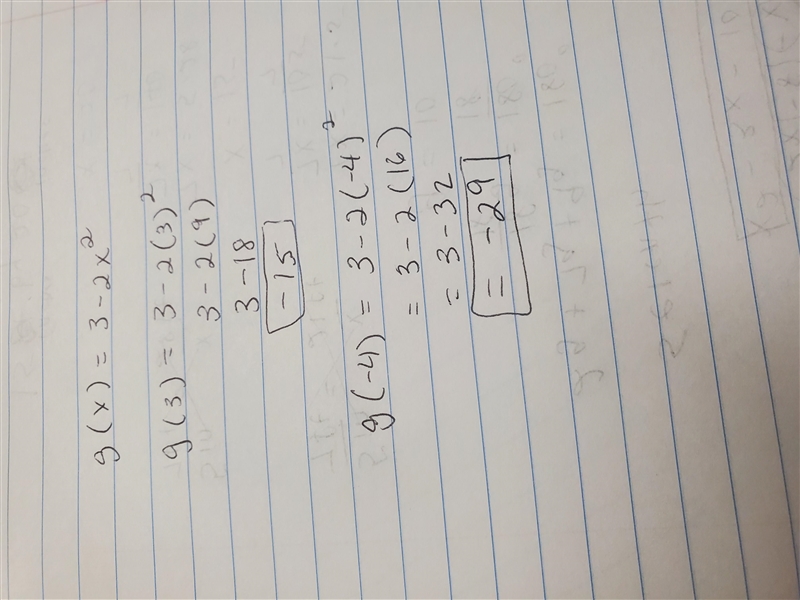 g(x) = 3 - 2x²
g(3) = 3 - 2(3)²
3 - 2(9)
3 - 18
-15
g(-4) = 3 - 2(-4)²
= 3 - 2(16)
= 3 - 32
= -29